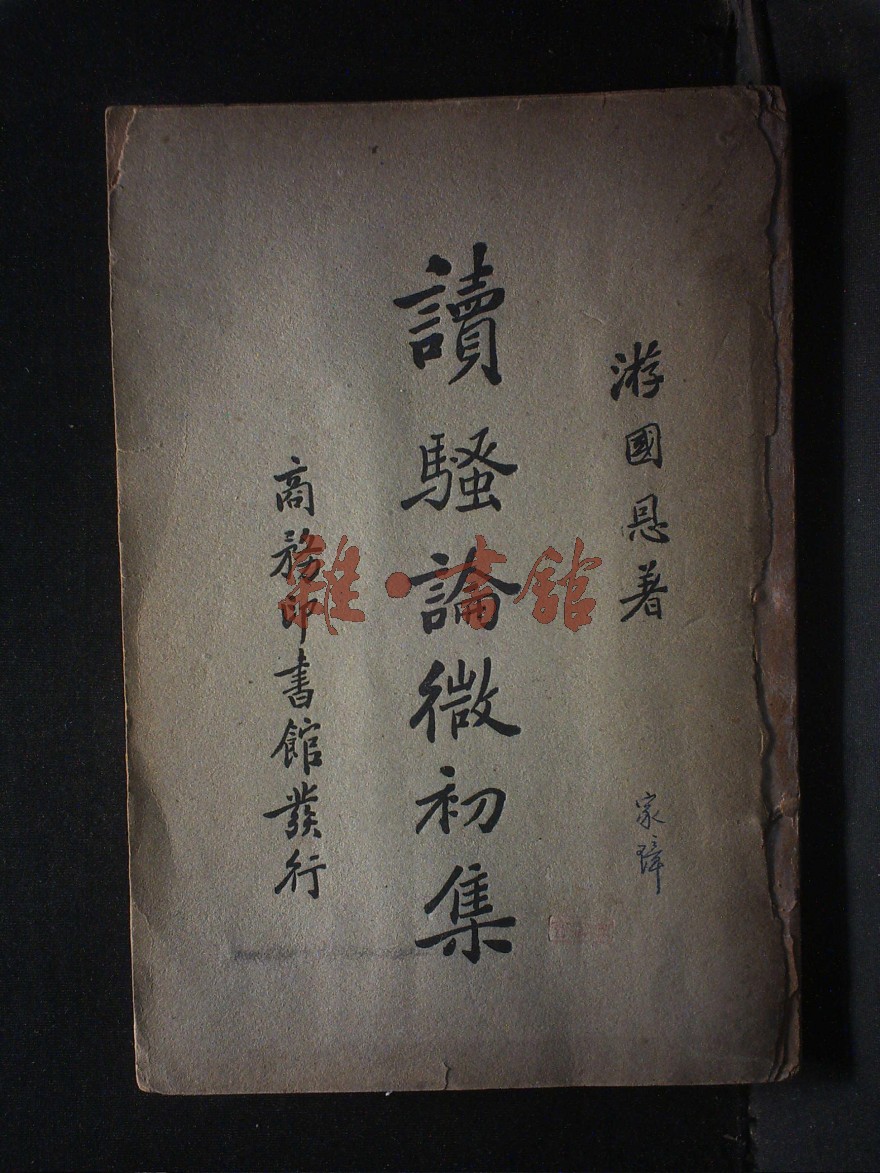 游國恩著
讀騷論微初集
商務印書館發行
家璋
雜·書館